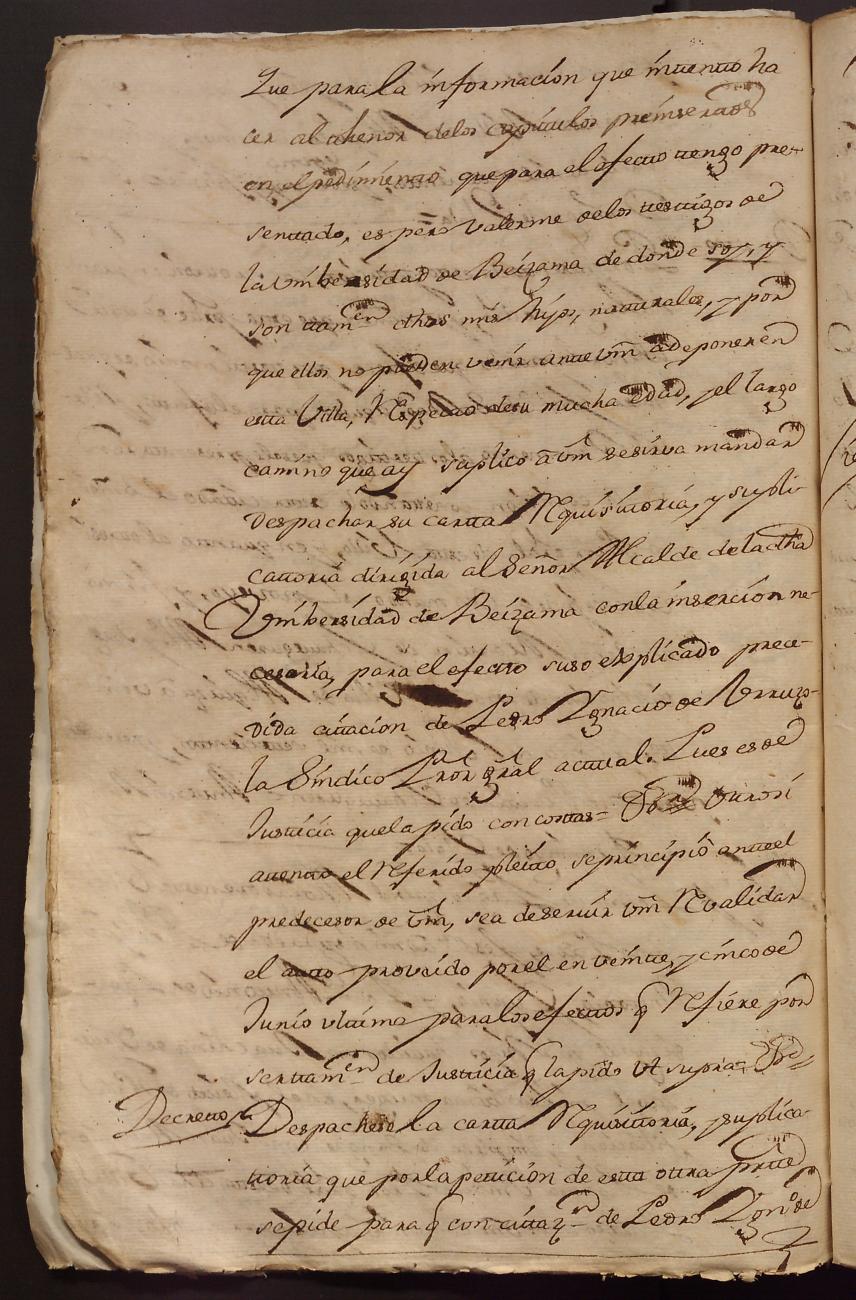 Que para la informacion que intento ha
cer al thenor delos capitulos preinsertos
en el pedimiento que para el efecto tengo pre-
sentado, es pero valerme delos testigos de
la Vnibersidad de Beizama de donde soy, y
son tamᵉⁿ dhos mis hijos, naturales, y por
que ellos no pueden venir ante Vm â deponer en
esta Villa, Respecto desu mucha edad, y el largo
camino que ay suplico â Vm se sirva mandar
despachar su carta Requisitoria, y supli
catoria dirigida al Señor Alcalde de la dha
Vnibersidad de Beizama con la insercion ne-
cesaria, para el efecto suso explicado prece-
dida citacion de Pedro Ygnacio de Vrruzo-
la Sindico Pror gral actual. Pues es de
Justicia que la pido con costas= Otrosi
atento el Referido pleito se principiô ante el
predecesor de Vm, sea de servir Vm Revalidar
el auto proveido por el en veinte, y cinco de
Junio vltimo para los efectos q Refiere por
ser tamᵉⁿ de Justicia q la pido Vt supra=
Decretto Despachese la carta Requisitoria, y suplica-
toria que por la peticion de esta otra parte
se pide para q con citazⁿ de Pedro Ygnº de